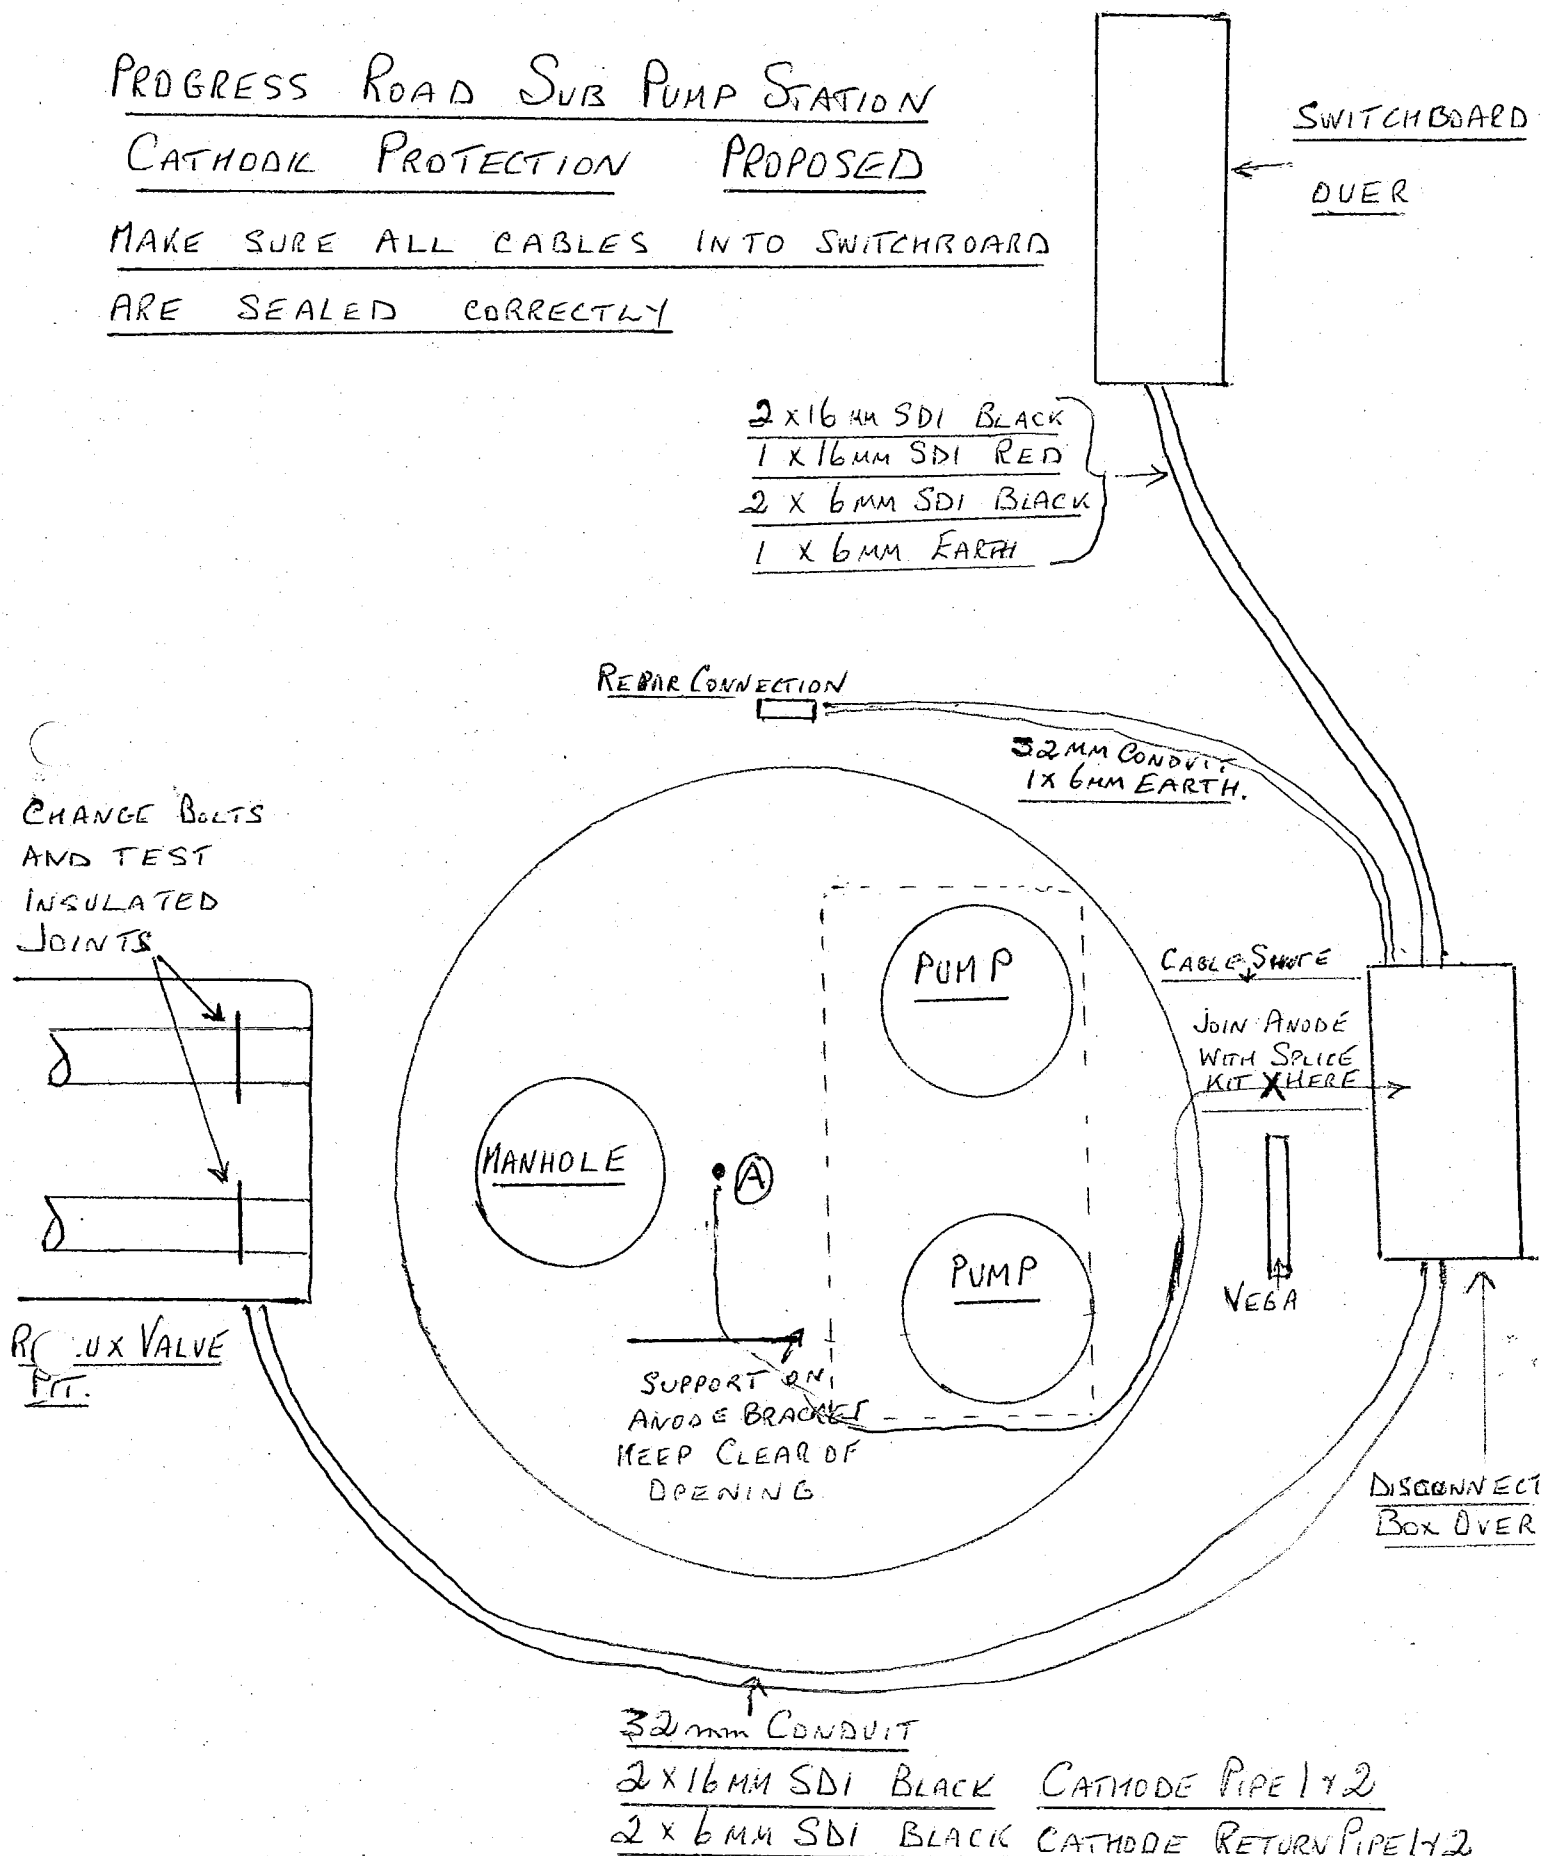 PROGRESS ROAD SUB PUMP STATION
CATHODIC PROTECTION PROPOSED
MAKE SURE ALL CABLES INTO SWITCHBOARD
ARE SEALED CORRECTLY
SWITCHBOARD
OVER
2 x 16 MM SDI BLACK
1 X 16MM SDI RED
2 X 6MM SDI BLACK
1 X 6MM EARTH
REBAR CONNECTION
32MM CONDUIT
1X 6MM EARTH.
CHANGE BOLTS
AND TEST
INSULATED
JOINTS
PUMP
CABLE SHUTE
JOIN ANODE
WITH SPLICE
KIT X HERE
MANHOLE
A
PUMP
VEGA
VALVE
PIT.
SUPPORT ON
ANODE BRACKET
KEEP CLEAR OF
OPENING
DISCONNECT
BOX OVER
32mm CONDUIT
2 X 16 MM SDI BLACK CATHODE PIPE 1 + 2
2 X 6 MM SDI BLACK CATHODE RETURN PIPE 1 + 2